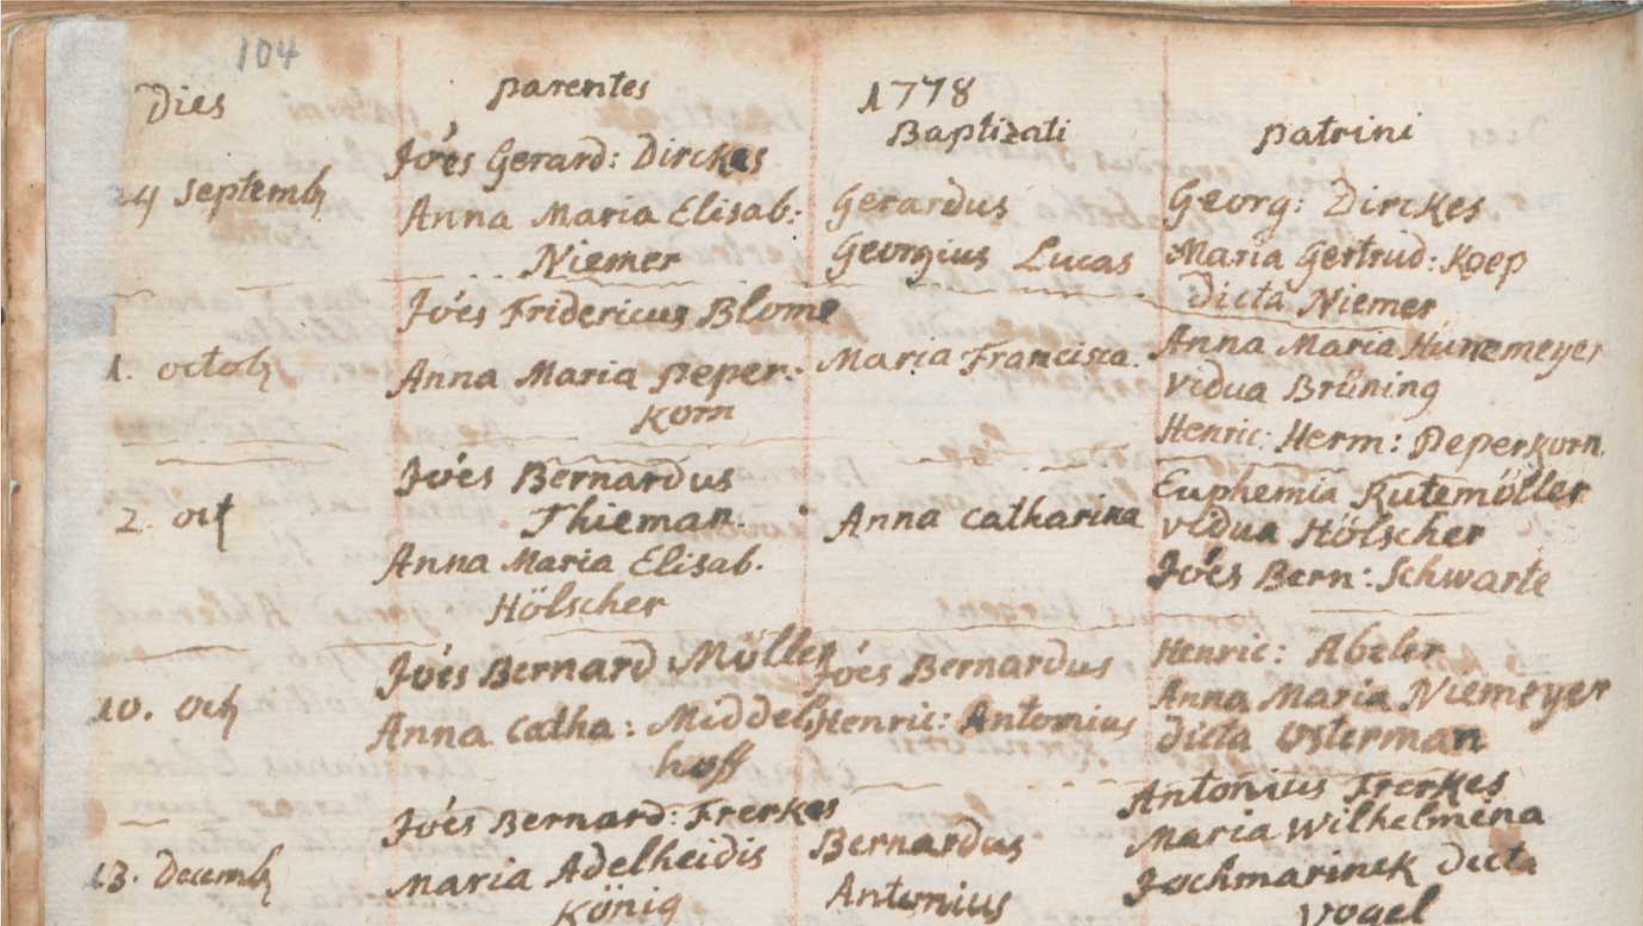 104
Dies
parentes
1778
Baptizati
patrini
24 septemb
Jóes Gerard: Dirckes
Anna Maria Elisab:
Niemer
Gerardus
Georgius Lucas
Georg: Dirckes
Maria Gertrud: Koep
dicta Niemer
1. octob
Jóes Fridericus Blome
Anna Maria peper:
Korn
Maria Francisca.
Anna Maria Hünemeyer
vidua Brüning
Henric: Herm: peperkorn.
2. oct
Jóes Bernardus
Thieman.
Anna Maria Elisab.
Hölscher
Anna catharina
Euphemia Rutemöller
vidua Hölscher
Jóes Bern: Schwarte
10. oct
Jóes Bernard Möller
Anna catha: Middel:
hoff
Jóes Bernardus
Henric: Antonius
Henric: Abeler
Anna Maria Niemeyer
dicta Osterman
13. Decemb
Jóes Bernard: Frerkes
Maria Adelheidis
König
Bernardus
Antonius
Antonius Frerkes
Maria Wilhelmina
Jochmarinck dicta
Vogel